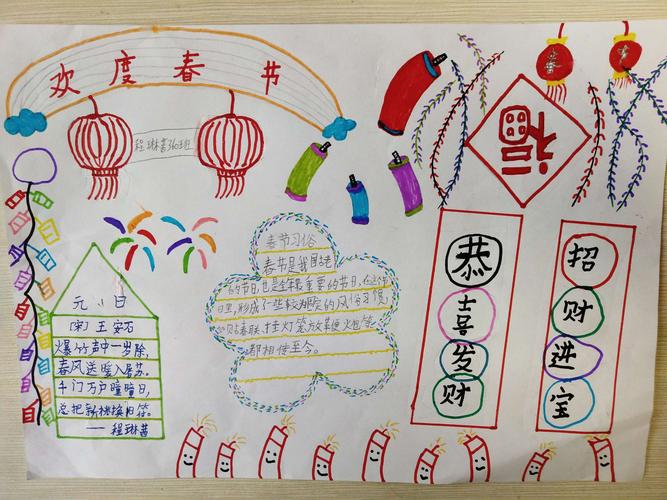 欢度春节
福
程琳茜
元日
[宋] 王安石
爆竹声中一岁除,
春风送暖入屠苏。
千门万户曈曈日,
总把新桃换旧符。
——程琳茜
春节习俗
春节是我国
的节日,也是全年最重要的节日,在这个
日里,形成了一些较为的风俗习惯,
如贴春联、挂灯笼、放鞭炮等,
都相传至今。
恭喜发财
招财进宝